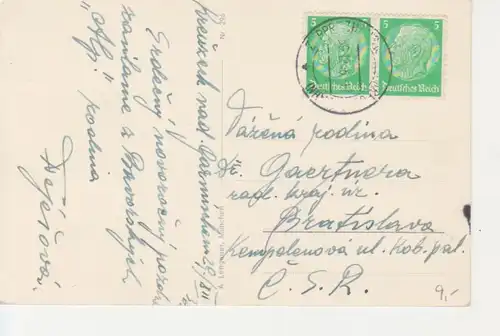 Kreuzeck nad Garmischom 29/XII
Srdečný novoročný pozdrav
zasielame z Bavorských
"Alp" rodina
Dejéšová.
5 5
Deutsches Reich Deutsches Reich
Vážená rodina
Dr. Gaertnera
rad. kraj. úr.
Bratislava
Kempelenova ul. Kob. pal.
Č. S. R.
9,-